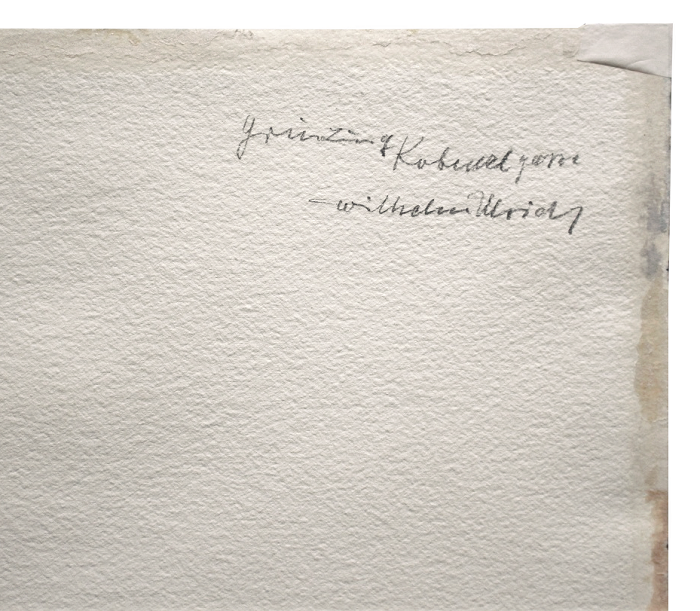 Grinzing Kobenzlgasse
Wilhelm Ulrich